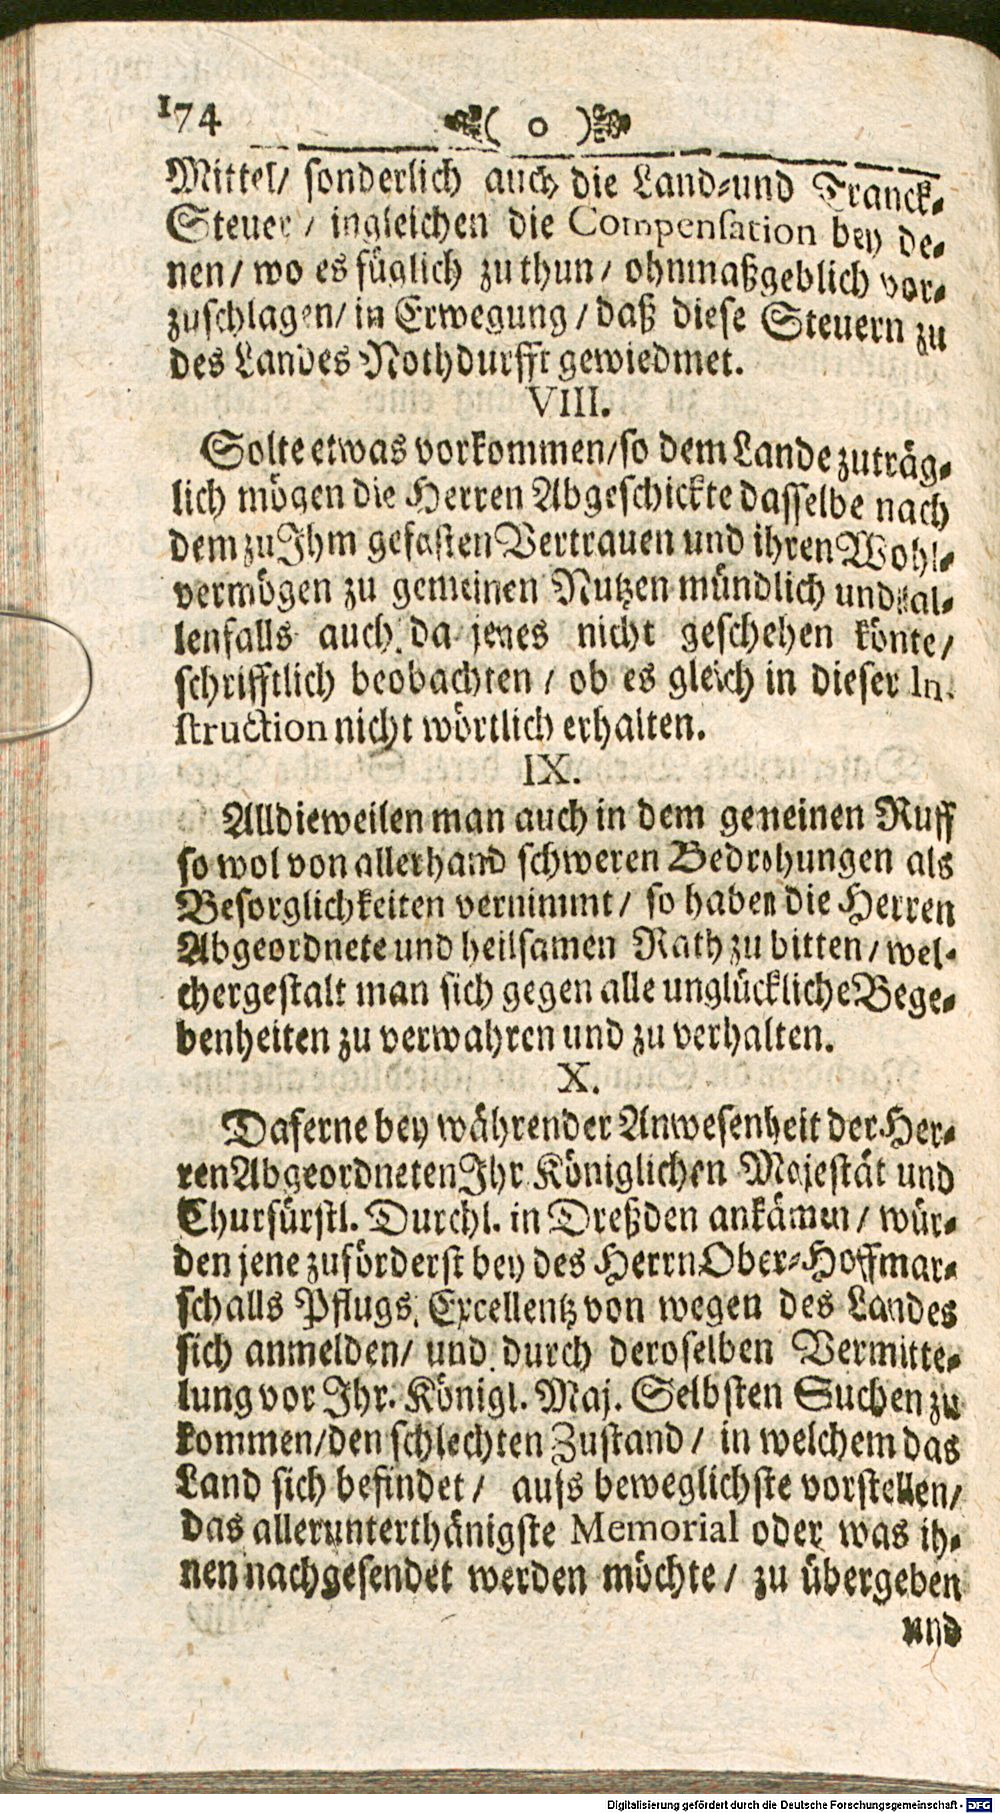 174 ( o )
Mittel/ sonderlich auch die Land-und Tranck-
Steuer / ingleichen die Compensation bey de-
nen/ wo es füglich zu thun/ ohnmaßgeblich vor-
zuschlagen/ in Erwegung / daß diese Steuern zu
des Landes Nothdurfft gewiedmet.
VIII.
Solte etwas vorkommen/so dem Lande zuträg-
lich mögen die Herren Abgeschickte dasselbe nach
dem zu Ihm gefasten Vertrauen und ihren Wohl-
vermögen zu gemeinen Nutzen mündlich und al-
lenfalls auch da jenes nicht geschehen könte/
schrifftlich beobachten / ob es gleich in dieser In-
struction nicht wörtlich erhalten.
IX.
Alldieweilen man auch in dem gemeinen Ruff
so wol von allerhand schweren Bedrohungen als
Besorglichkeiten vernimmt/ so haben die Herren
Abgeordnete und heilsamen Rath zu bitten/ wel-
chergestalt man sich gegen alle unglückliche Bege-
benheiten zu verwahren und zu verhalten.
X.
Daferne bey währender Anwesenheit der Her-
ren Abgeordneten Ihr Königlichen Majestät und
Churfürstl. Durchl. in Dreßden ankämen/ wür-
den jene zuförderst bey des Herrn Ober-Hoffmar-
schalls Pflugs, Excellentz von wegen des Landes
sich anmelden/ und durch deroselben Vermitte-
lung vor Ihr. Königl. Maj. Selbsten Suchen zu
kommen/den schlechten Zustand/ in welchem das
Land sich befindet/ aufs beweglichste vorstellen/
das allerunterthänigste Memorial oder was ih-
nen nachgesendet werden möchte/ zu übergeben
und
Digitalisierung gefördert durch die Deutsche Forschungsgemeinschaft - DFG